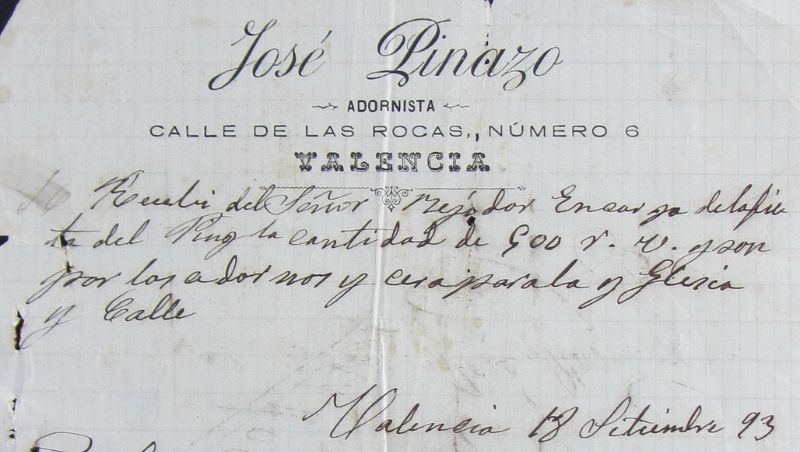 José Pinazo
ADORNISTA
CALLE DE LAS ROCAS,, NÚMERO 6
VALENCIA
Recibi del Señor Rejidor Encarga de la fies
ta del Puig la cantidad de 900 r. v. y son
por los adornos y cera para la y Glesia
y Calle
Valencia 18 Setiembre 93